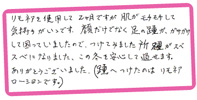 リモネアを使用して2ヶ月ですが肌がモチモチして
気持ちがいいです。顔だけでなく足の踵が、ガサガサ
して困っていましたので、つけてみました所踵がスベ
スベになりました。この冬を安心して過せます。
ありがとうございました。(踵へつけたのはリモネア
ンです。)